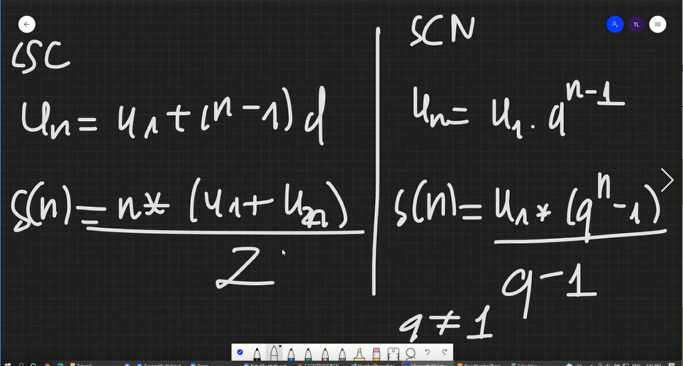 CSC
un = u1 + (n-1)d
S(n) = n * (u1 + un)
2
SCN
un = u1 . q^n-1
S(n) = u1 * (q^n - 1)
q - 1
q ≠ 1
TL